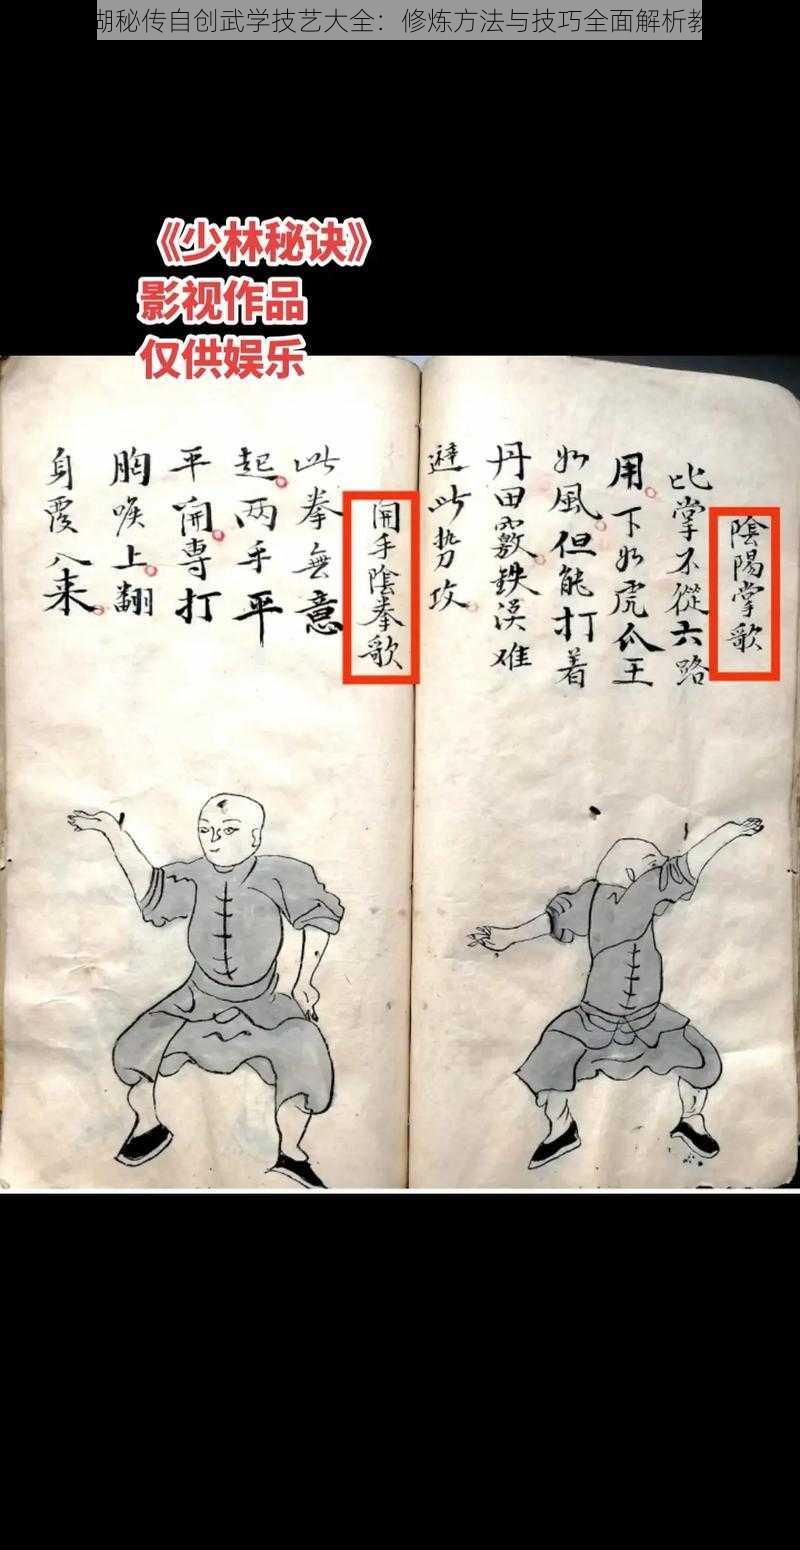 湖秘传自创武学技艺大全：修炼方法与技巧全面解析教
《少林秘诀》
影视作品
仅供娱乐
陰陽掌歌
比掌不從六路
用下如虎爪王
如風但能打着
丹田竅鉄漢难
避此势攻
開手陰拳歌
此拳無意
起两手平
平開専打
胸喉上翻
身覆入来